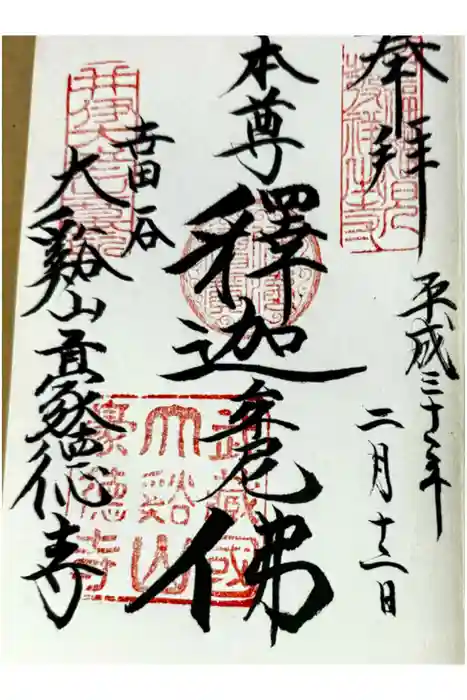 奉拝
平成三十年
二月十二日
本尊
釋迦牟尼佛
世田谷
大谿山豪徳寺
武藏國
大谿山
豪德寺